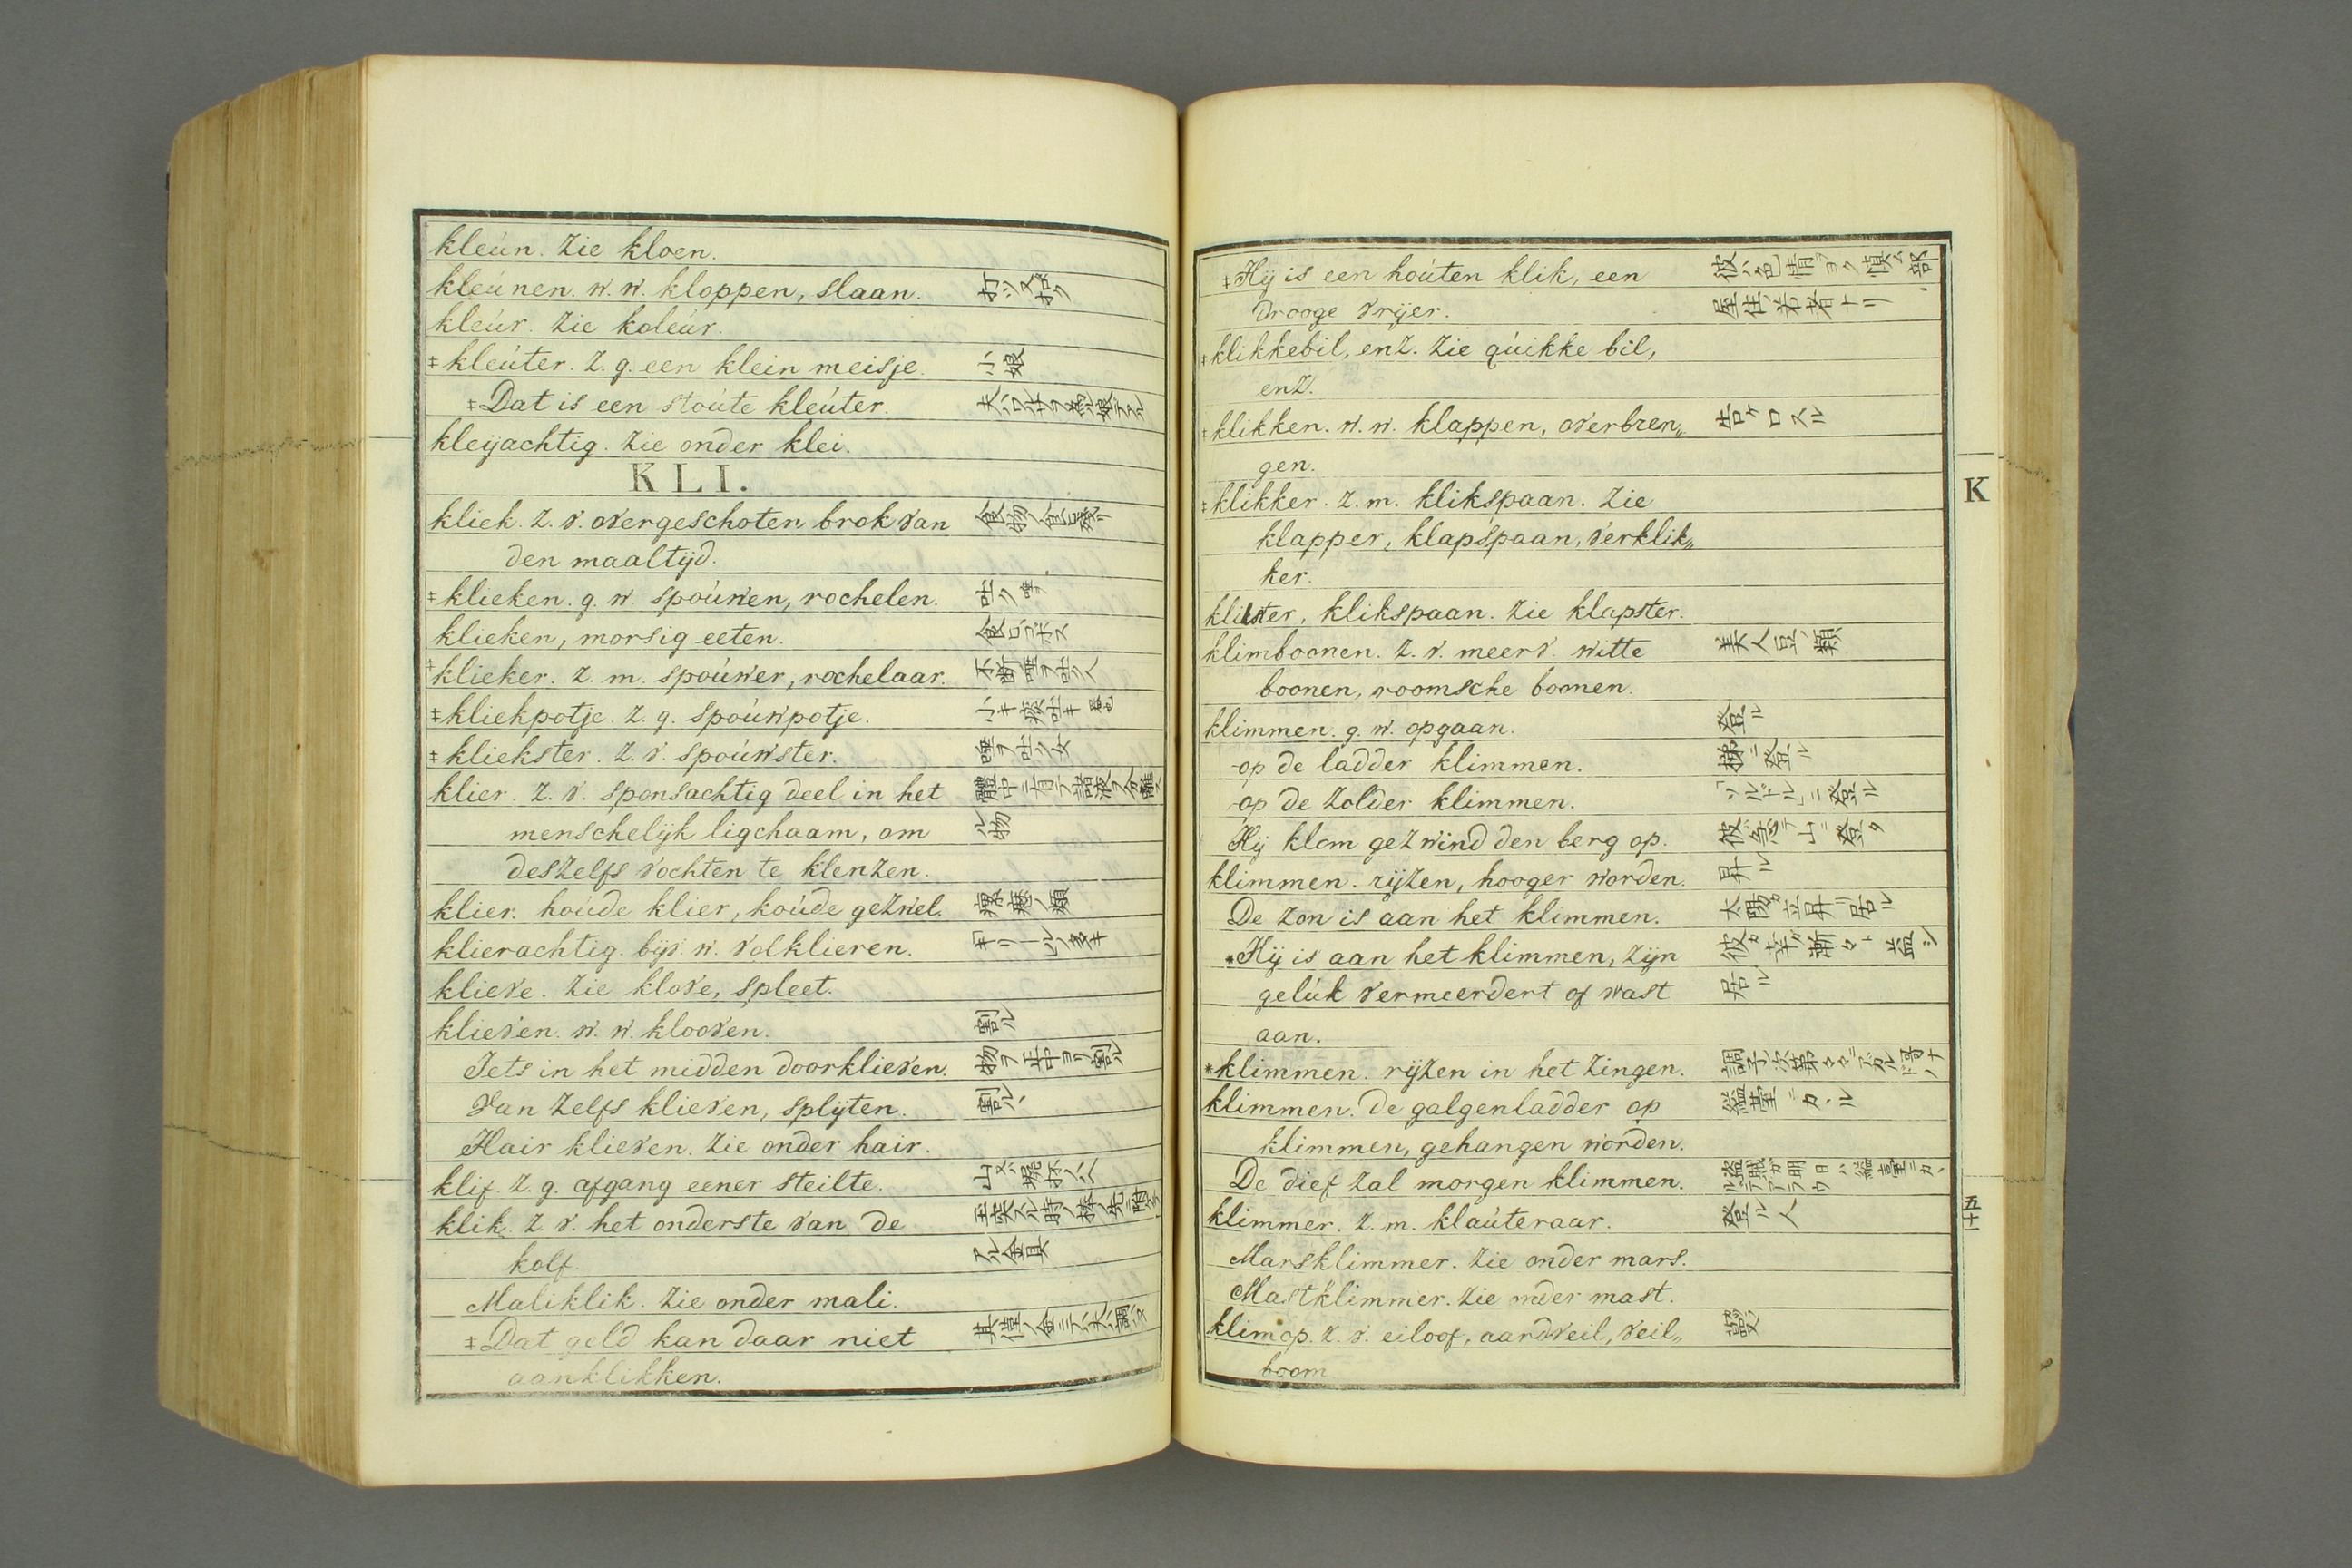 kleún. Zie kloen.
kleúnen. w. w. kloppen, slaan. 打ツ又扣ク
kleúr. Zie koleúr.
‡kleúter. z. g. een klein meisje. 小娘
‡Dat is een stoúte kleúter.
kleijachtig. Zie onder klei.
KLI.
kliek. z. v. overgeschoten brok van 食物ノ食ヒ残リ
den maaltijd.
‡klieken. g. w. spoúwen, rochelen. 吐ク
klieken, morsig eeten. 食ヒコボス
‡klieker. z. m. spoúwer, rochelaar. 不断唾ヲ吐ク人
‡kliekpotje. z. g. spoúwpotje. 小キ痰吐キ
‡kliekster. z. v. spoúwster. 唾ヲ吐ク女
klier. z. v. sponsachtig deel in het 體中ニ有テ諸液ヲ分離ス
menschelijk ligchaam, om ル物
deszelfs vochten te klenzen.
klier. koúde klier, koúde gezwel. 瘰癧ノ類
klierachtig. bijv. w. vol klieren.
klieve. Zie klove, spleet.
klieven. w. w. klooven. 割ル
Iets in het midden doorklieven. 物ヲ正中ヨリ割ル
Van zelfs klieven, splijten. 割ル
Hair klieven. Zie onder hair.
klif. z. g. afgang eener steilte.
klik. z. v. het onderste van de
kolf. 金具
Maliklik. Zie onder mali.
‡Dat geld kan daar niet
aanklikken.
‡Hij is een hoúten klik, een
drooge vrijer.
‡klikkebil, enz. Zie qúikke bil,
enz.
‡klikken. w. w. klappen, overbren„ 告ケ口スル
gen.
‡klikker. z. m. klikspaan. Zie
klapper, klapspaan, verklik„
ker.
klikster, klikspaan. Zie klapster.
klimboonen. z. v. meerv. witte 美人豆ノ類
boonen, roomsche boonen.
klimmen. g. w. opgaan. 登ル
op de ladder klimmen. 梯ニ登ル
op de zolder klimmen. 「ソルドル」ニ登ル
Hij klom gezwind den berg op. 彼ハ急テ山ニ登タ
klimmen. rijzen, hooger worden. 昇ル
De zon is aan het klimmen. 太陽カ立昇リ居ル
*Hij is aan het klimmen, zijn 彼カ幸カ漸々ト益シ
gelúk vermeerdert of wast 居ル
aan.
*klimmen. rijzen in het zingen.
klimmen. De galgenladder op 縊臺ニカヽル
klimmen, gehangen worden.
De dief zal morgen klimmen. 盗賊カ明日ハ縊臺ニカヽ
ルテアラウ
klimmer. z. m. klaúteraar. 登ル人
Marsklimmer. Zie onder mars.
Mastklimmer. Zie onder mast.
klimop. z. v. eiloof, aardveil, veil„
boom
K